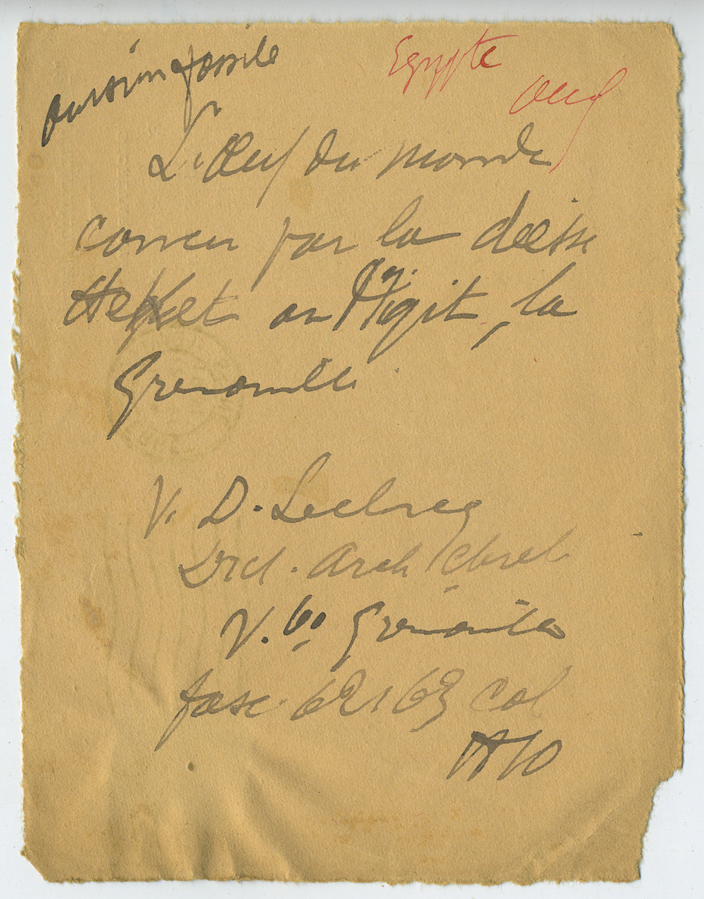 oursin fossile
Egypte
oeuf
L'Oeuf du monde
concu par la déesse
Hekket en Egit, la
Grenouille
V. D. Leclercq
Dict. Arch Chret
V. bo Grenouille
fasc. 62 & 63 Col
1810